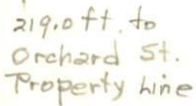 219.0 ft. to
Orchard St.
Property Line